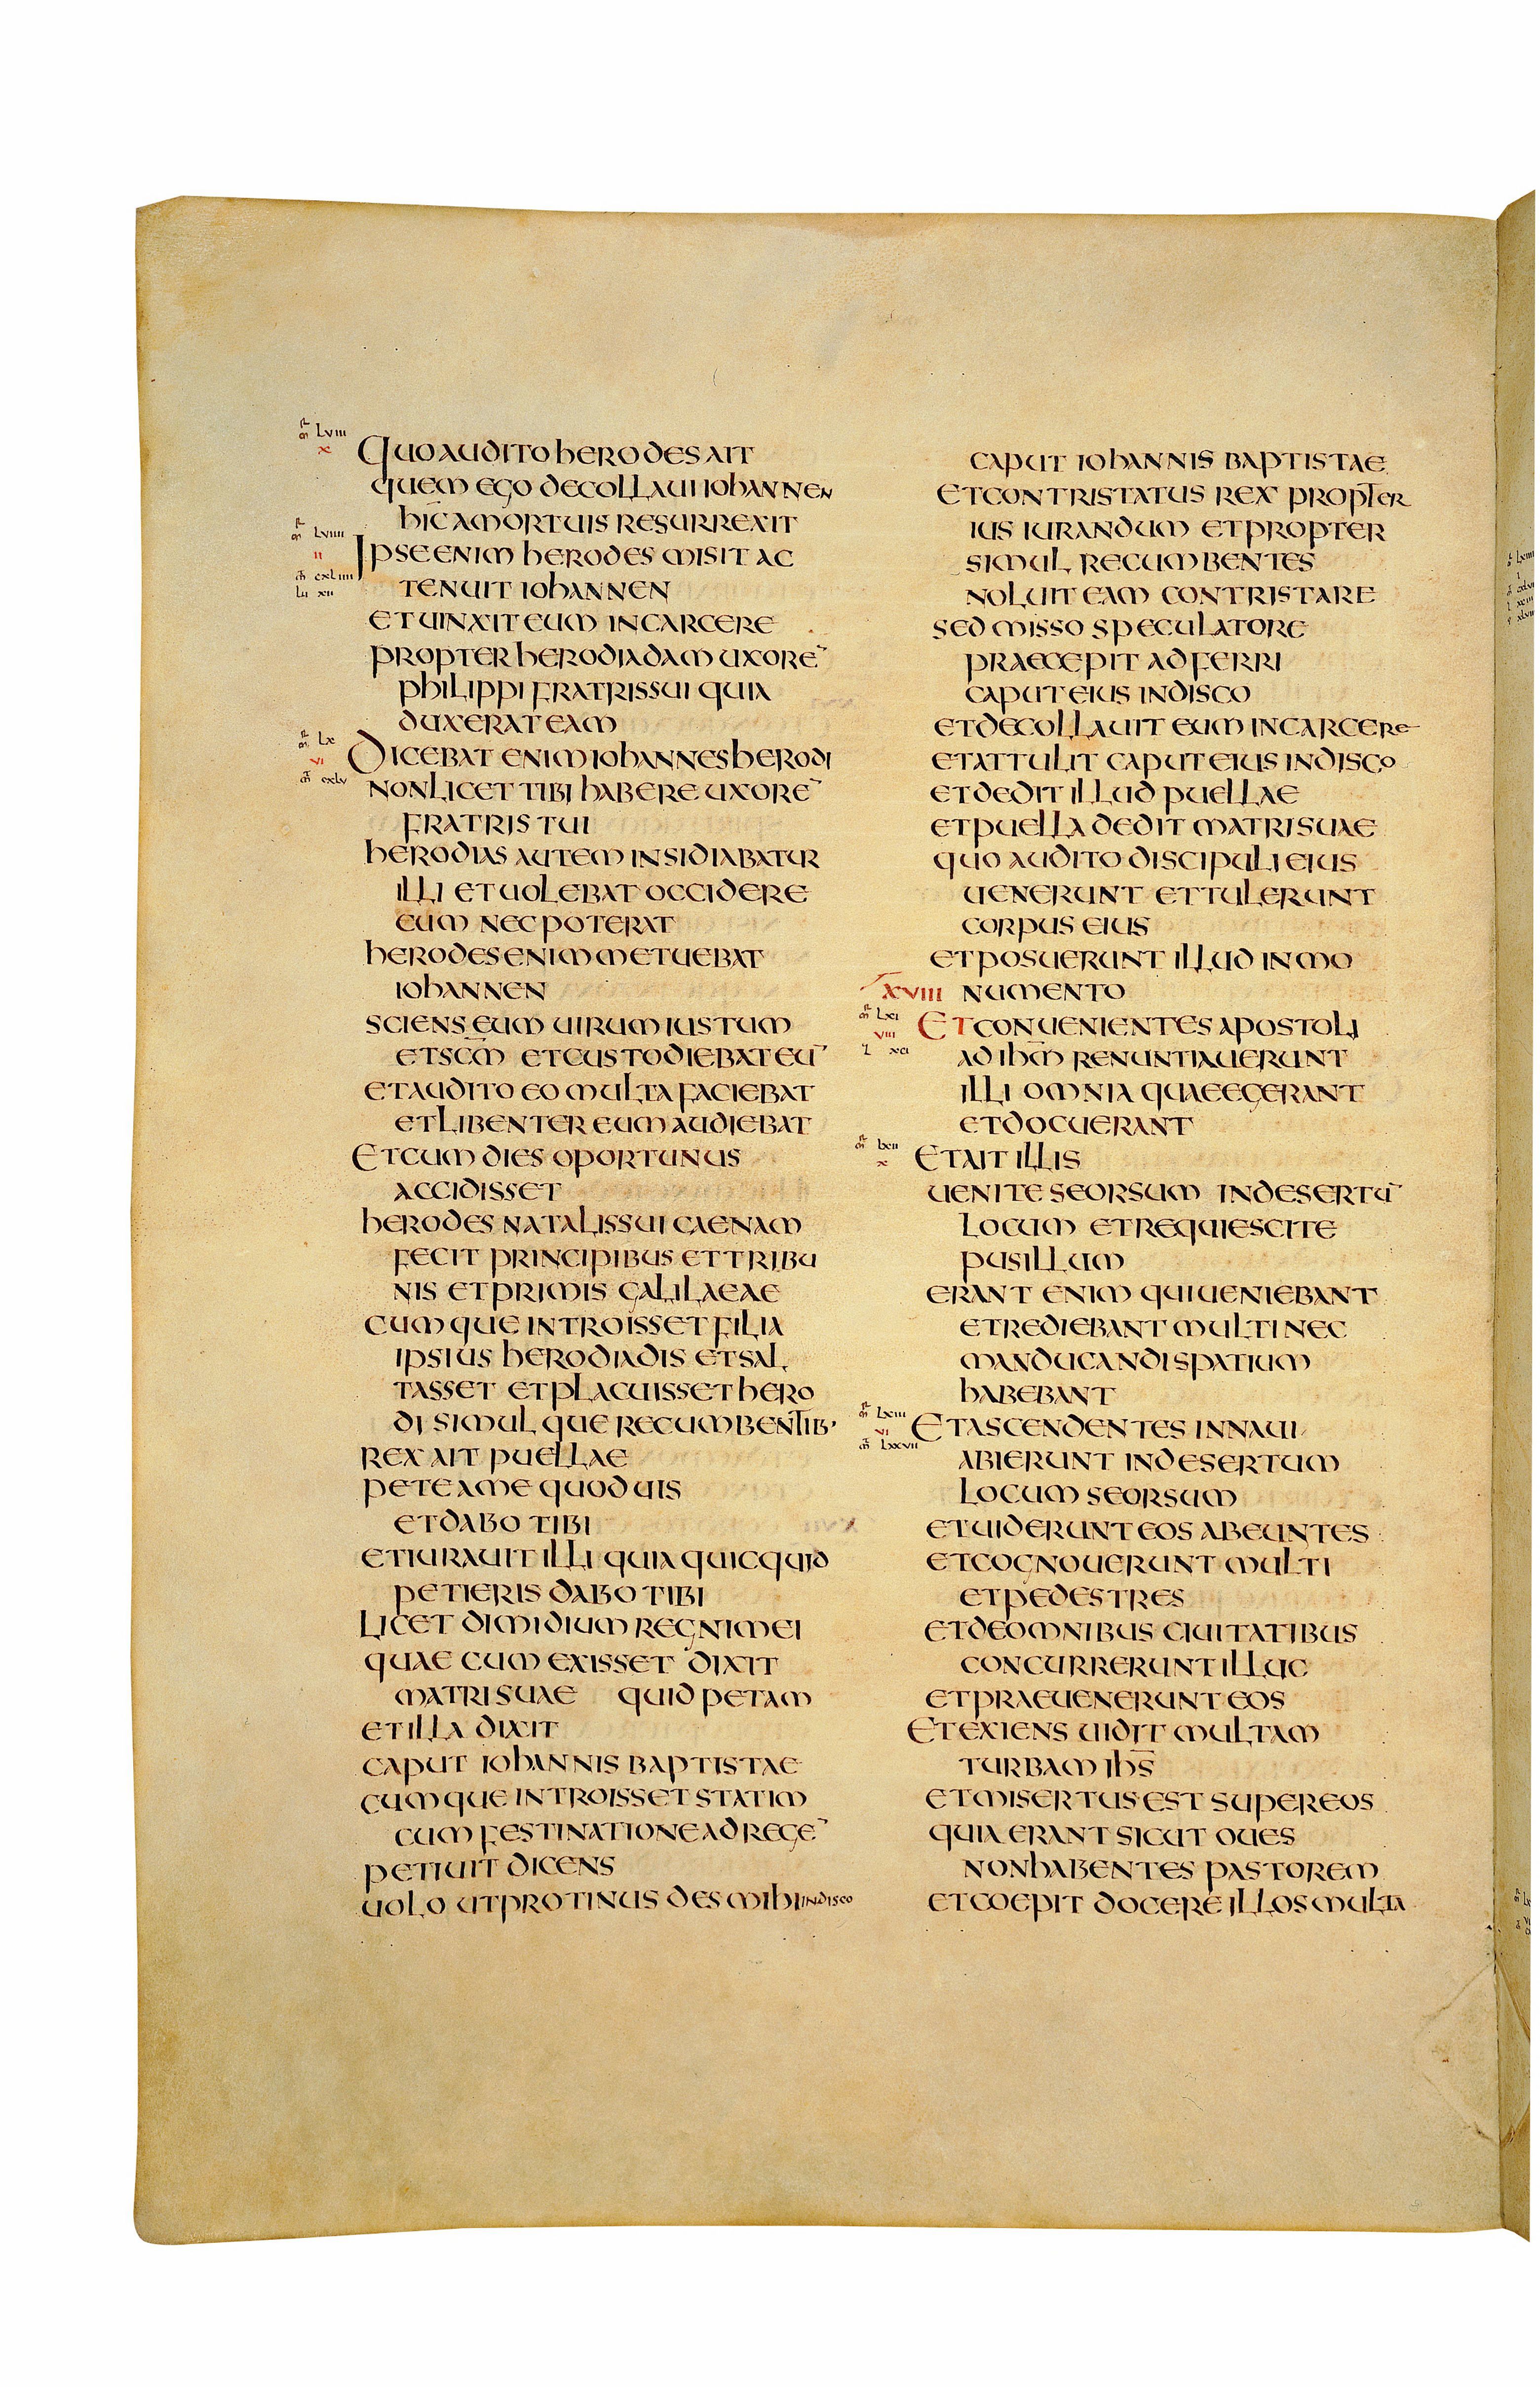 Lviii
x
QUO AUDITO hERODES AIT
QUEM EGO DECOLLAUI IOhANNEN
hIC A MORTUIS RESURREXIT
Lviiii
ii
IPSE ENIM hERODES MISIT AC
cxliiii
TENUIT IOhANNEN
Lu xii
ET UINXIT EUM IN CARCERE
PROPTER hERODIADAM UXORE¯
PhILIPPI FRATRIS SUI QUIA
DUXERAT EAM
Lx
vi
DICEBAT ENIM IOhANNES hERODI
cxlv
NON LICET TIBI hABERE UXORE¯
FRATRIS TUI
hERODIAS AUTEM INSIDIABATUR
ILLI ET UOLEBAT OCCIDERE
EUM NEC POTERAT
hERODES ENIM METUEBAT
IOhANNEN
SCIENS EUM UIRUM IUSTUM
ET SC̄M ET CUSTODIEBAT EU¯
ET AUDITO EO MULTA FACIEBAT
ET LIBENTER EUM AUDIEBAT
ET CUM DIES OPORTUNUS
ACCIDISSET
hERODES NATALIS SUI CAENAM
FECIT PRINCIPIBUS ET TRIBU
NIS ET PRIMIS GALILAEAE
CUMQUE INTROISSET FILIA
IPSIUS hERODIADIS ET SAL
TASSET ET PLACUISSET hERO
DI SIMULQUE RECUMBENTIB·
REX AIT PUELLAE
PETE A ME QUOD UIS
ET DABO TIBI
ET IURAUIT ILLI QUIA QUICQUID
PETIERIS DABO TIBI
LICET DIMIDIUM REGNI MEI
QUAE CUM EXISSET DIXIT
MATRI SUAE QUID PETAM
ET ILLA DIXIT
CAPUT IOhANNIS BAPTISTAE
CUMQUE INTROISSET STATIM
CUM FESTINATIONE AD REGE¯
PETIUIT DICENS
UOLO UT PROTINUS DES MIhI IN DISCO
CAPUT IOhANNIS BAPTISTAE
ET CONTRISTATUS REX PROPTER
IUS IURANDUM ET PROPTER
SIMUL RECUMBENTES
NOLUIT EAM CONTRISTARE
SED MISSO SPECULATORE
PRAECEPIT ADFERRI
CAPUT EIUS IN DISCO
ET DECOLLAUIT EUM IN CARCERE
ET ATTULIT CAPUT EIUS IN DISCO
ET DEDIT ILLUD PUELLAE
ET PUELLA DEDIT MATRI SUAE
QUO AUDITO DISCIPULI EIUS
UENERUNT ET TULERUNT
CORPUS EIUS
ET POSUERUNT ILLUD IN MO
XVIII NUMENTO
Lxi
viii
ET CONUENIENTES APOSTOLI
L xci
AD IhM̄ RENUNTIAUERUNT
ILLI OMNIA QUAE EGERANT
ET DOCUERANT
Lxii
x
ET AIT ILLIS
UENITE SEORSUM IN DESERTU¯
LOCUM ET REQUIESCITE
PUSILLUM
ERANT ENIM QUI UENIEBANT
ET REDIEBANT MULTI NEC
MANDUCANDI SPATIUM
hABEBANT
Lxiii
vi
ET ASCENDENTES IN NAUI
Lxxvii
ABIERUNT IN DESERTUM
LOCUM SEORSUM
ET UIDERUNT EOS ABEUNTES
ET COGNOUERUNT MULTI
ET PEDESTRES
ET DE OMNIBUS CIUITATIBUS
CONCURRERUNT ILLUC
ET PRAEUENERUNT EOS
ET EXIENS UIDIT MULTAM
TURBAM IhS̄
ET MISERTUS EST SUPER EOS
QUIA ERANT SICUT OUES
NON hABENTES PASTOREM
ET COEPIT DOCERE ILLOS MULTA